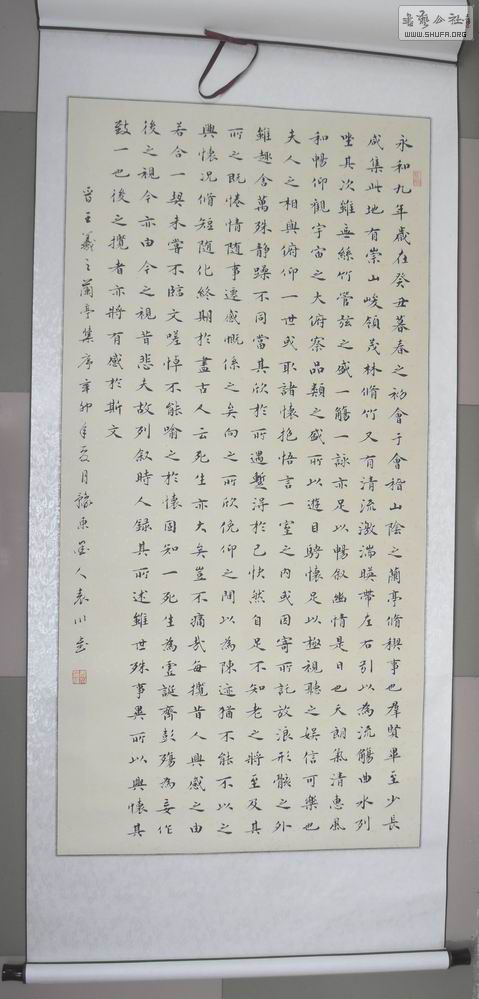 書藝公社
WWW.SHUFA.ORG
永和九年歲在癸丑暮春之初會于會稽山陰之蘭亭脩禊事也羣賢畢至少長
咸集此地有崇山峻領茂林脩竹又有清流激湍暎帶左右引以為流觴曲水列
坐其次雖無絲竹管弦之盛一觴一詠亦足以暢敘幽情是日也天朗氣清惠風
和暢仰觀宇宙之大俯察品類之盛所以遊目騁懷足以極視聽之娛信可樂也
夫人之相與俯仰一世或取諸懷抱悟言一室之內或因寄所託放浪形骸之外
雖趣舍萬殊靜躁不同當其欣於所遇暫得於己快然自足不知老之將至及其
所之既惓情隨事遷感慨係之矣向之所欣俛仰之閒以為陳迹猶不能不以之
興懷況脩短隨化終期於盡古人云死生亦大矣豈不痛哉每攬昔人興感之由
若合一契未嘗不臨文嗟悼不能喻之於懷固知一死生為虛誕齊彭殤為妄作
後之視今亦由今之視昔悲夫故列敘時人錄其所述雖世殊事異所以興懷其
致一也後之攬者亦將有感於斯文
晉王羲之蘭亭集序辛卯年夏月豫東墨人袁川書